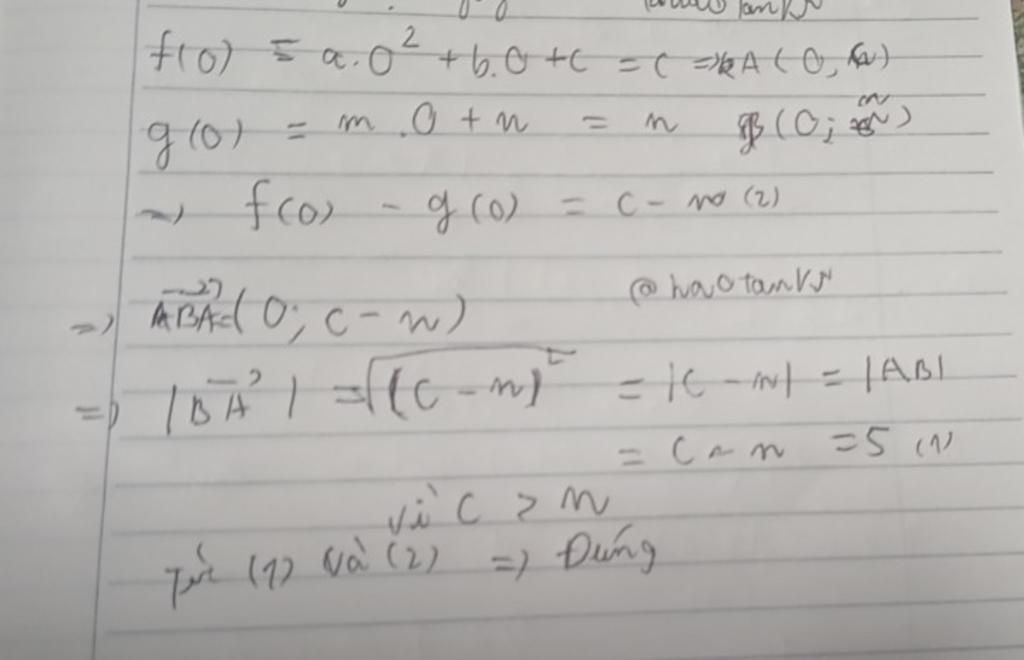 f(0) = a.0² + b.0 + c = c => A(0,
g(0) = m.0 + n = n B(0; n)
=> f(0) - g(0) = c - n (2)
@haotankN
=> BA = (0; c - n)
=> |BA| = √(c - n)² = |c - n| = |AB|
= c - n = 5 (1)
vì c > n
Từ (1) và (2) => Đúng